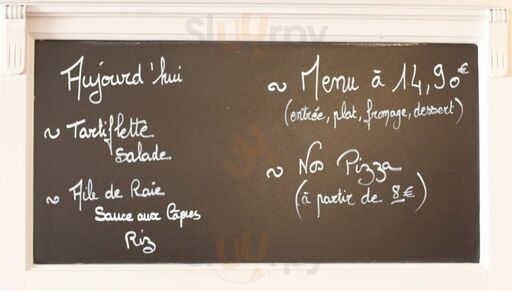 Aujourd'hui
~ Tartiflette
Salade
~ Aile de Raie
Sauce aux Câpres
Riz
~ Menu à 14,90€
(entrée, plat, fromage, dessert)
~ Nos Pizza
(à partir de 8€)
Sluurpy
Sluurpy